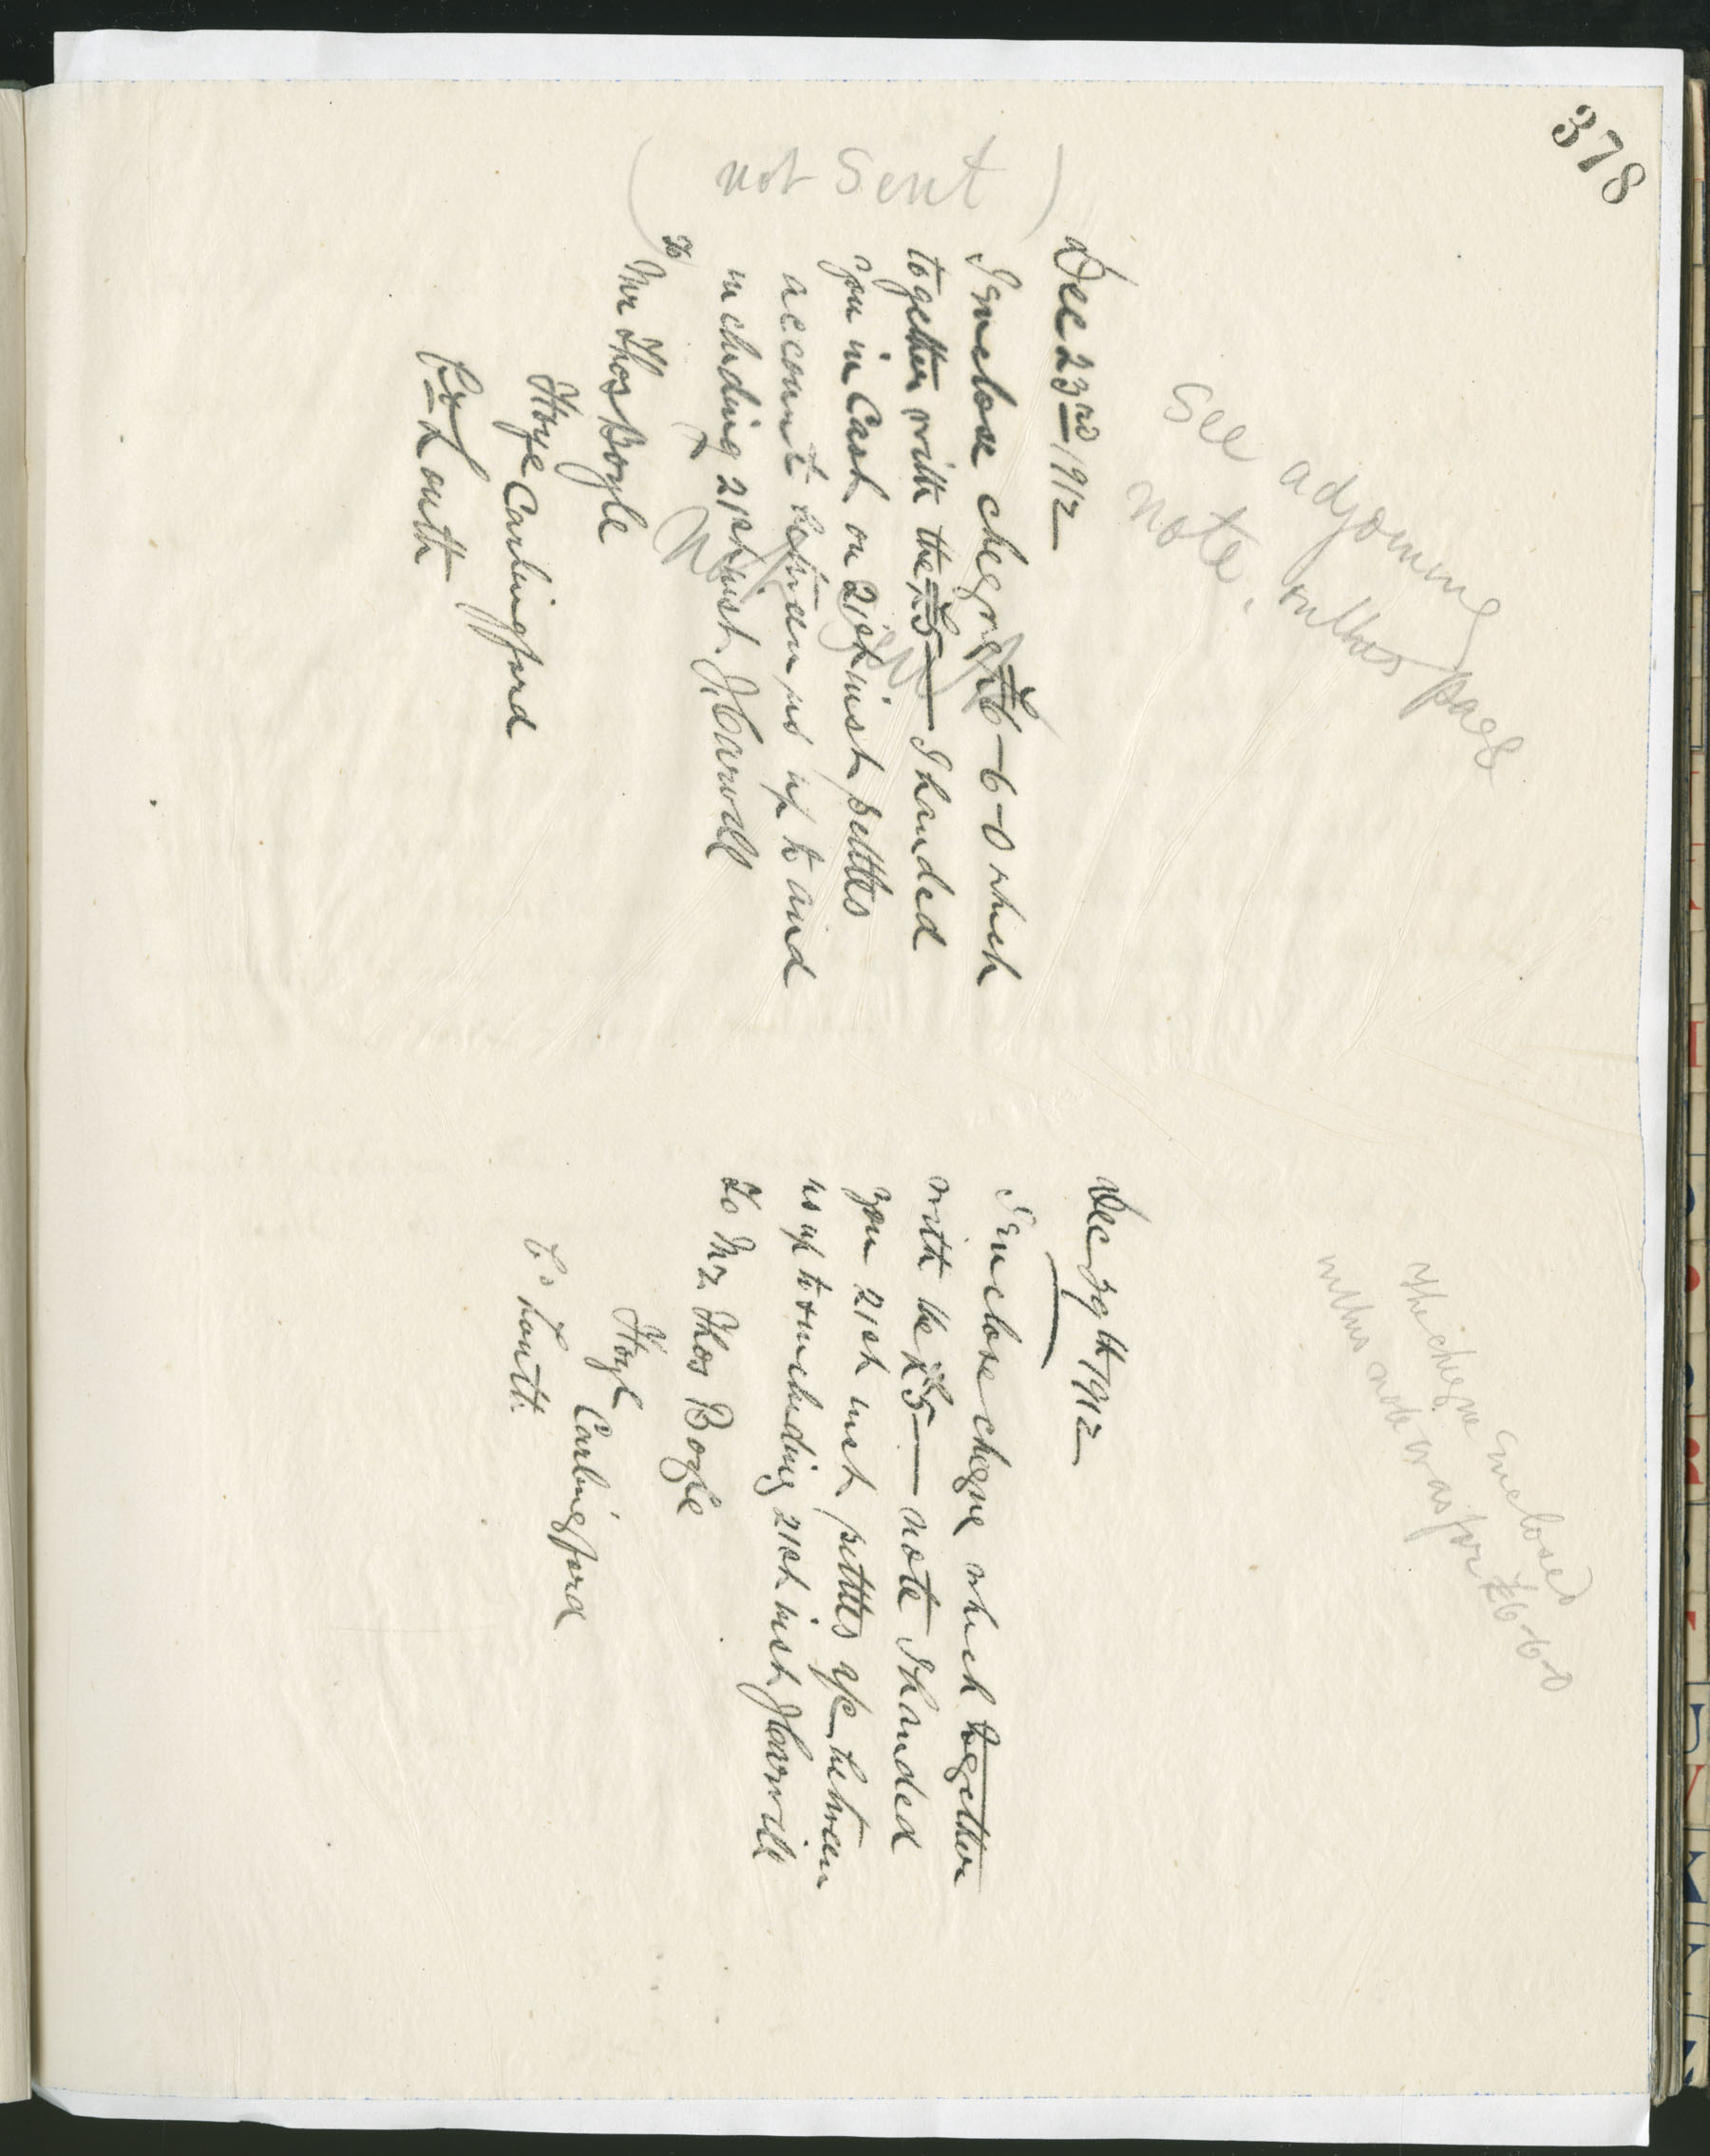 378
(not Sent)
See adjoining
note, on this page
Dec 23rd 1912
I enclose cheque £6-6-0 which
together with the £5— I handed
you in Cash on 21st inst settles
account between us up to and
including 21st inst. J. Carvill
Not Sent
To
Mr Thos Boyle
Carlingford
Co Louth
The cheque enclosed
in this note was for £6-6-0
1912
I enclose cheque which together
with the £5— note I handed
you 21st inst settles a/c between
us up to & including 21st inst J Carvill
To Mr. Thos Boyle
Carlingford
Co Louth.